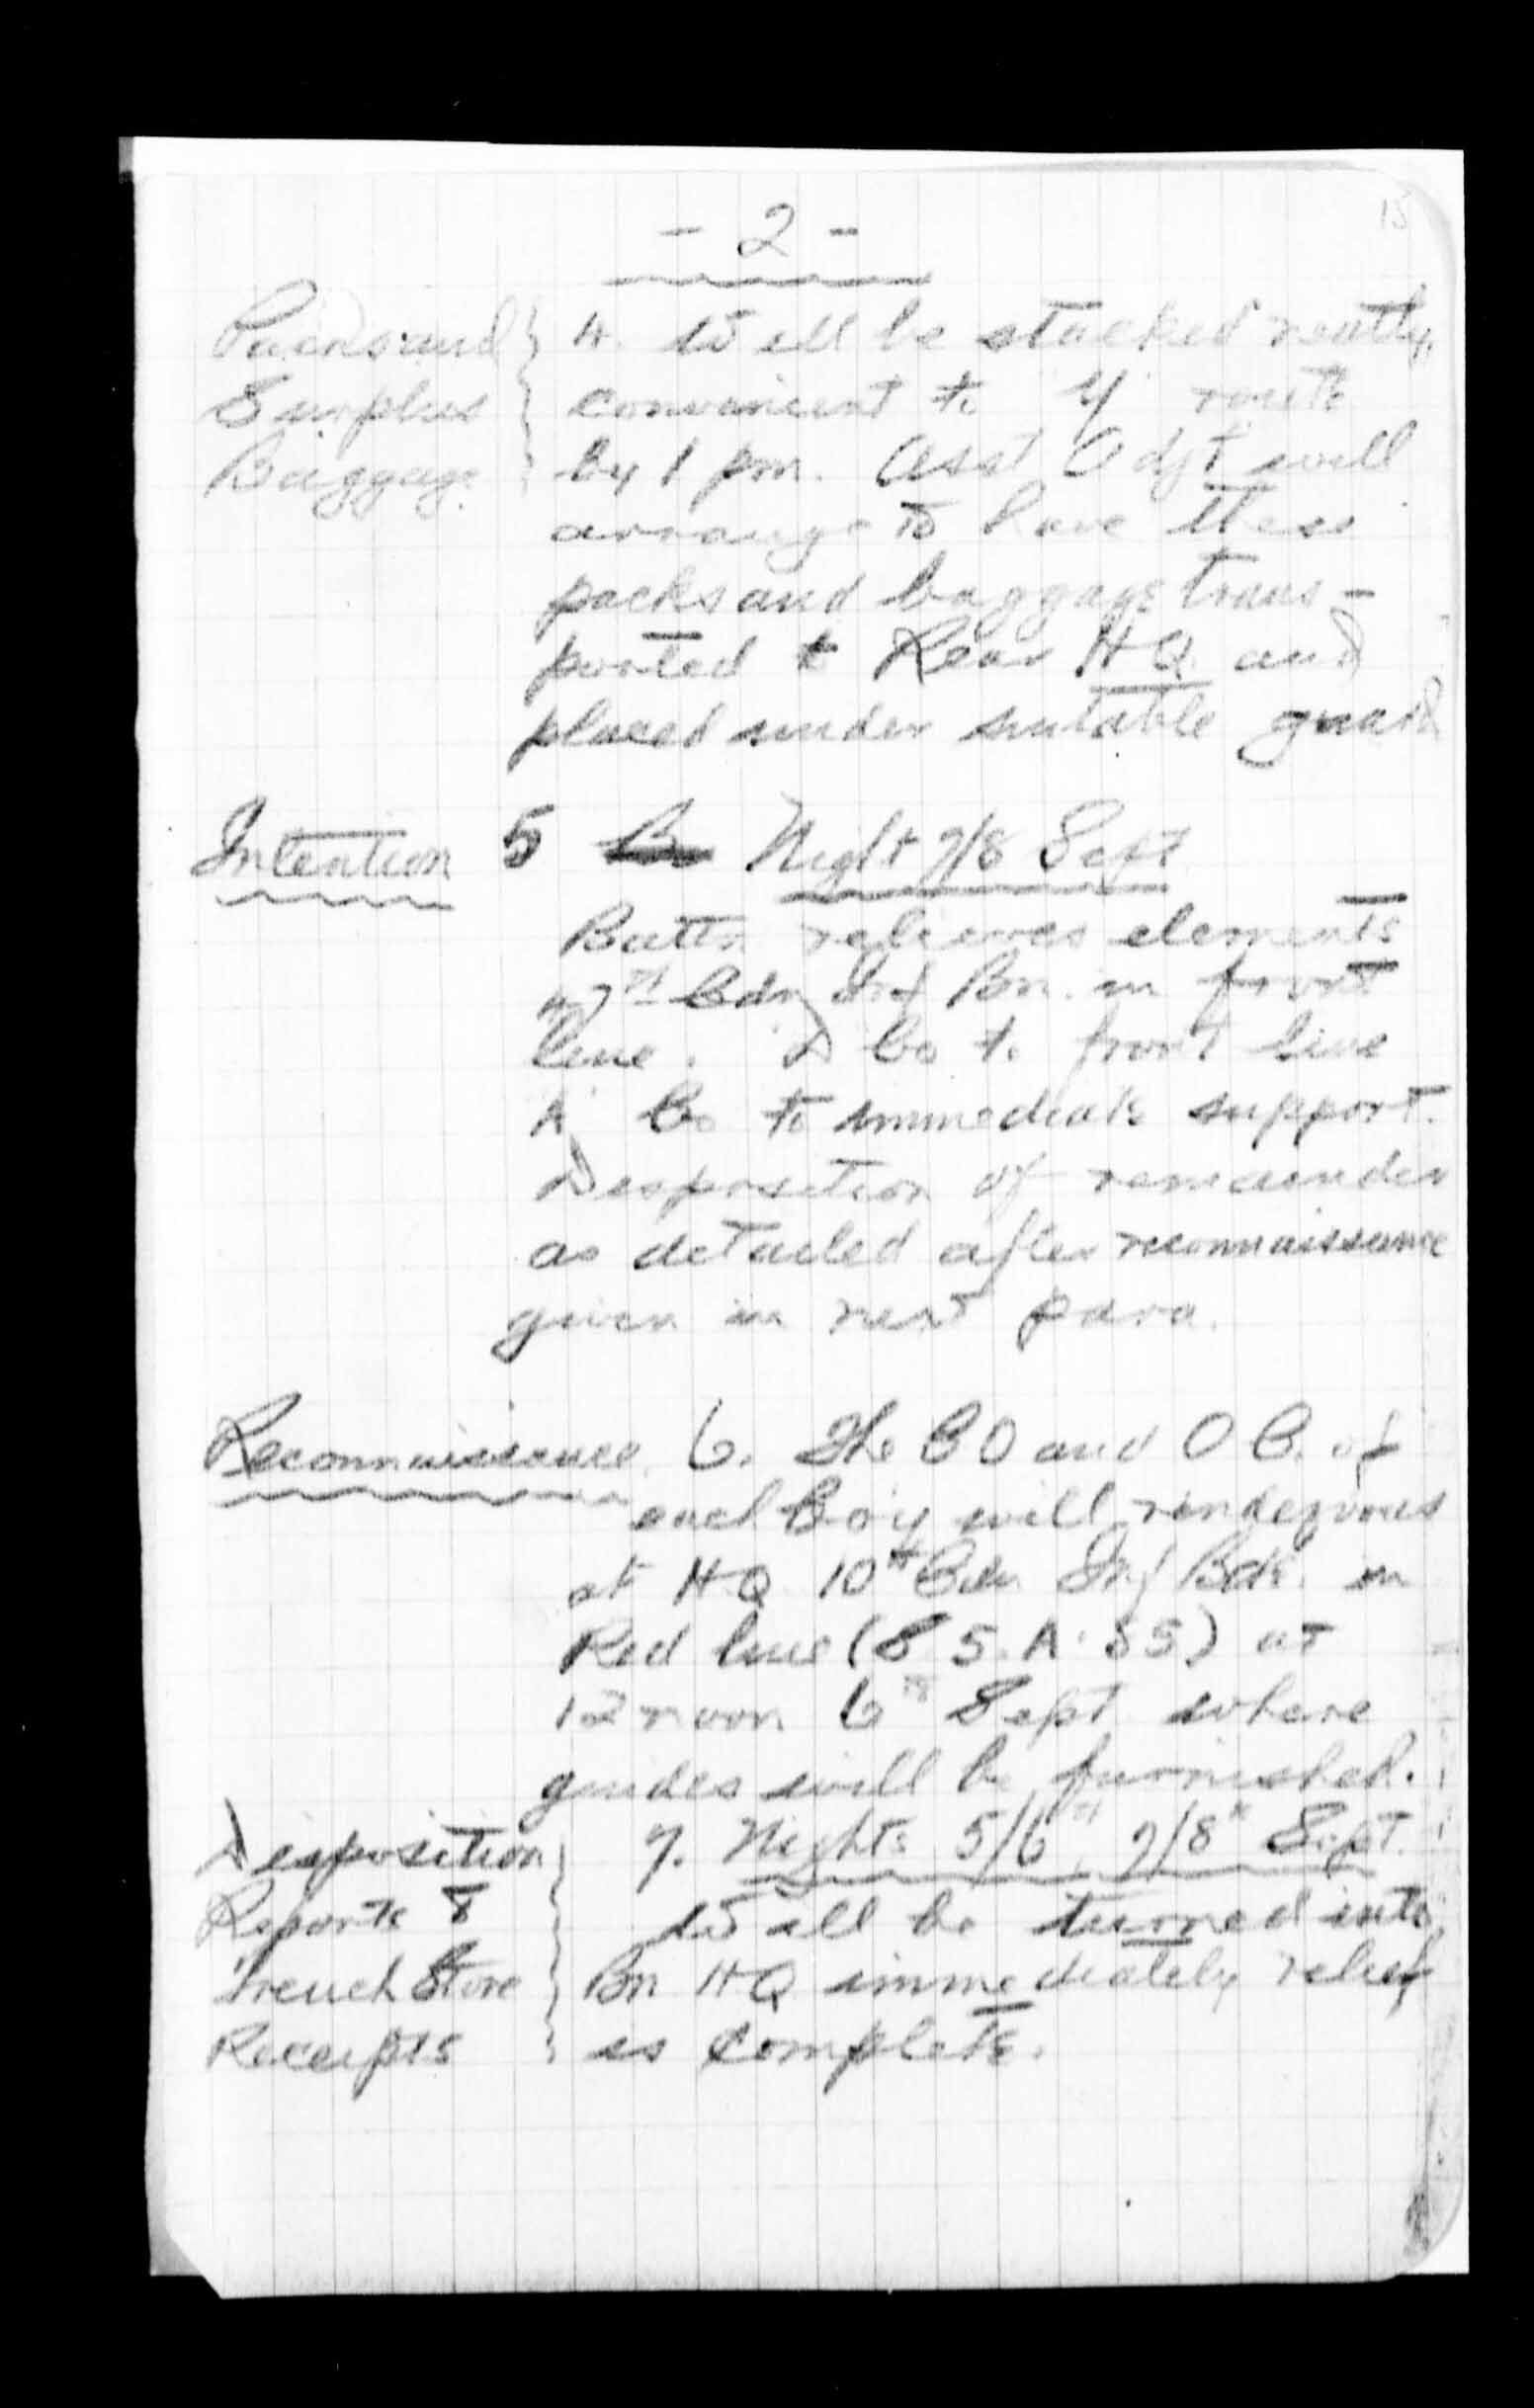 - 2 -
15
Packs and Surplus Baggage
4. Will be stacked neatly,
convenient to route
by 1 pm. Asst Adjt will
arrange to have these
packs and baggage trans-
ported to Rear HQ and
placed under suitable guard
Intention 5 Night 7/8 Sept
Battn relieves elements
7th Cdn Inf Bn. in front
line. D Co to front line
A Co to immediate support.
Disposition of remainder
as detailed after reconnaissance
given in next para.
Reconnaissance 6. The CO and O C. of
each Coy will rendezvous
at HQ 10th Cdn Inf Bde. in
Red line ( 5.A. ) at
12 noon 6th Sept where
guides will be furnished.
Disposition Reports & Trench Store Receipts
7. Nights 5/6th, 7/8th Sept.
Will be turned into
Bn HQ immediately relief
is complete.